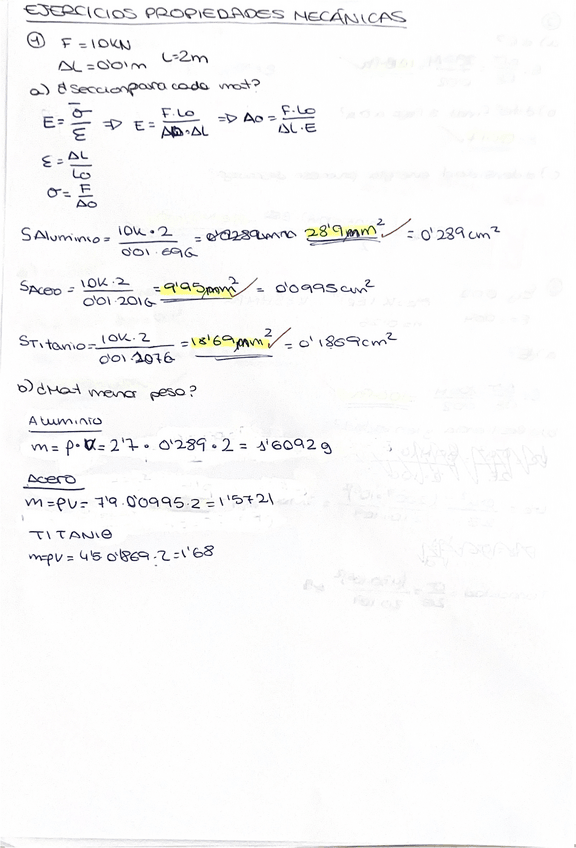 EJERCICIOS PROPIEDADES MECÁNICAS
① F = 10KN
ΔL = 0'01m L=2m
a) ¿Seccion para cada mat?
E = σ/ε => E = F·Lo/Ao·ΔL => Ao = F·Lo/ΔL·E
ε = ΔL/Lo
σ = F/Ao
SAluminio = 10K·2/0'01·69G = 28'9mm² ✓ = 0'289cm²
SAcero = 10K·2/0'01·201G = 9'95mm² ✓ = 0'0995cm²
STitanio = 10K·2/0'01·107G = 18'69mm² ✓ = 0'1869cm²
b) ¿Mat menor peso?
Aluminio
m = ρ·V = 2'7 · 0'289 · 2 = 1'6092g
Acero
m = ρV = 7'9·0'0995·2 = 1'5721
TITANIO
m=ρV = 4'5·0'1869·2 = 1'68